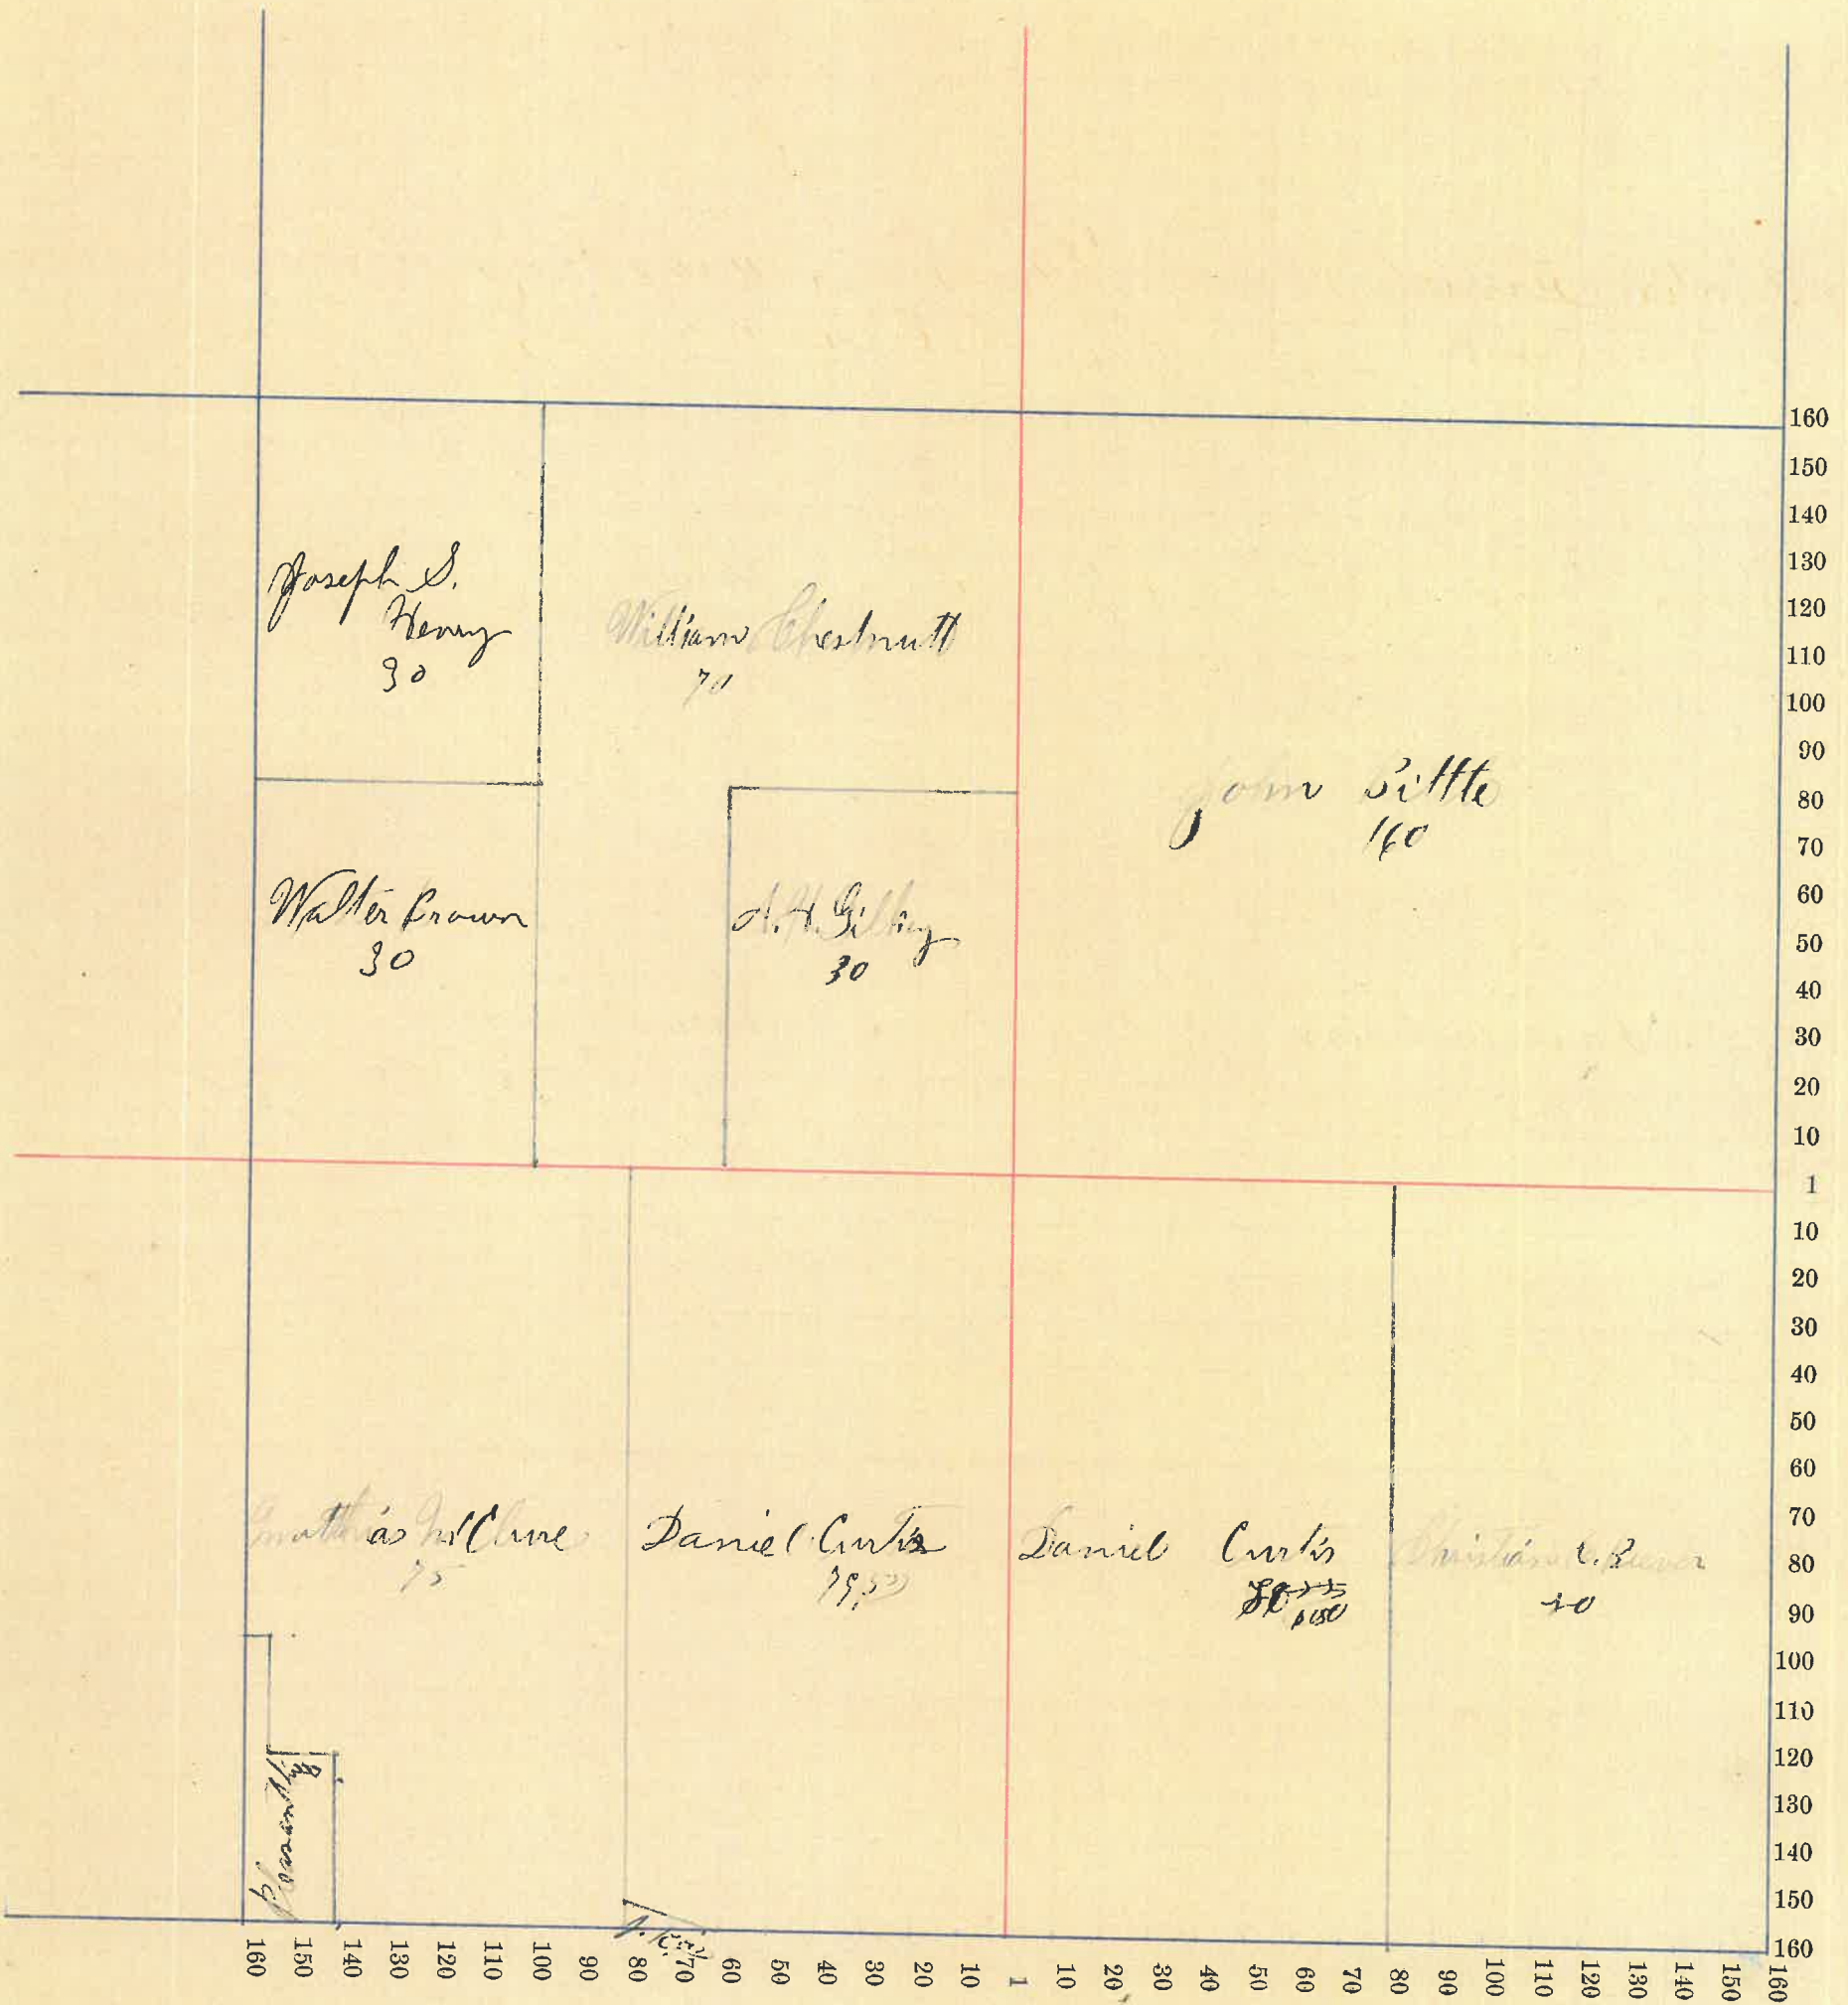 Joseph S.
Henry
30
William Chestnutt
70
John
160
Walter Brown
30
A. H.
30
Daniel Curtis
79.50
Daniel Curtis
75
Christian
160
150
140
130
120
110
100
90
80
70
60
50
40
30
20
10
1
10
20
30
40
50
60
70
80
90
100
110
120
130
140
150
160
160
150
140
130
120
110
100
90
80
70
60
50
40
30
20
10
1
10
20
30
40
50
60
70
80
90
100
110
120
130
140
150
160